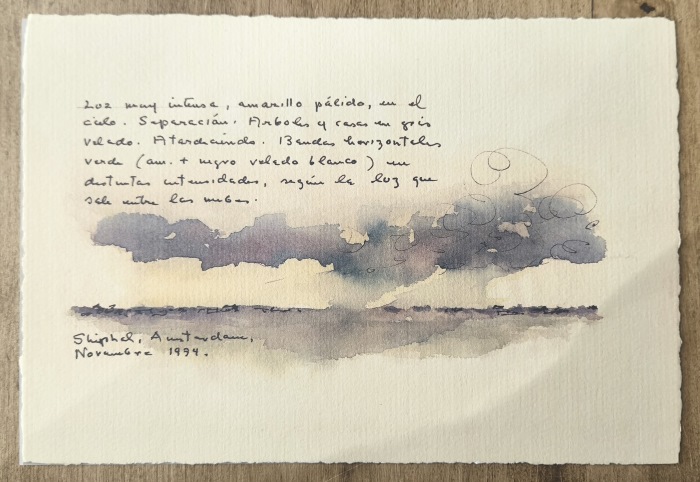 Luz muy intensa, amarillo pálido, en el
cielo. Separación. Arboles y casas en gris
velado. Atardeciendo. Bandas horizontales
verde (am. + negro velado blanco) en
distintas intensidades, según la luz que
sale entre las nubes.
Shiphol, Amsterdam,
Novembre 1994.